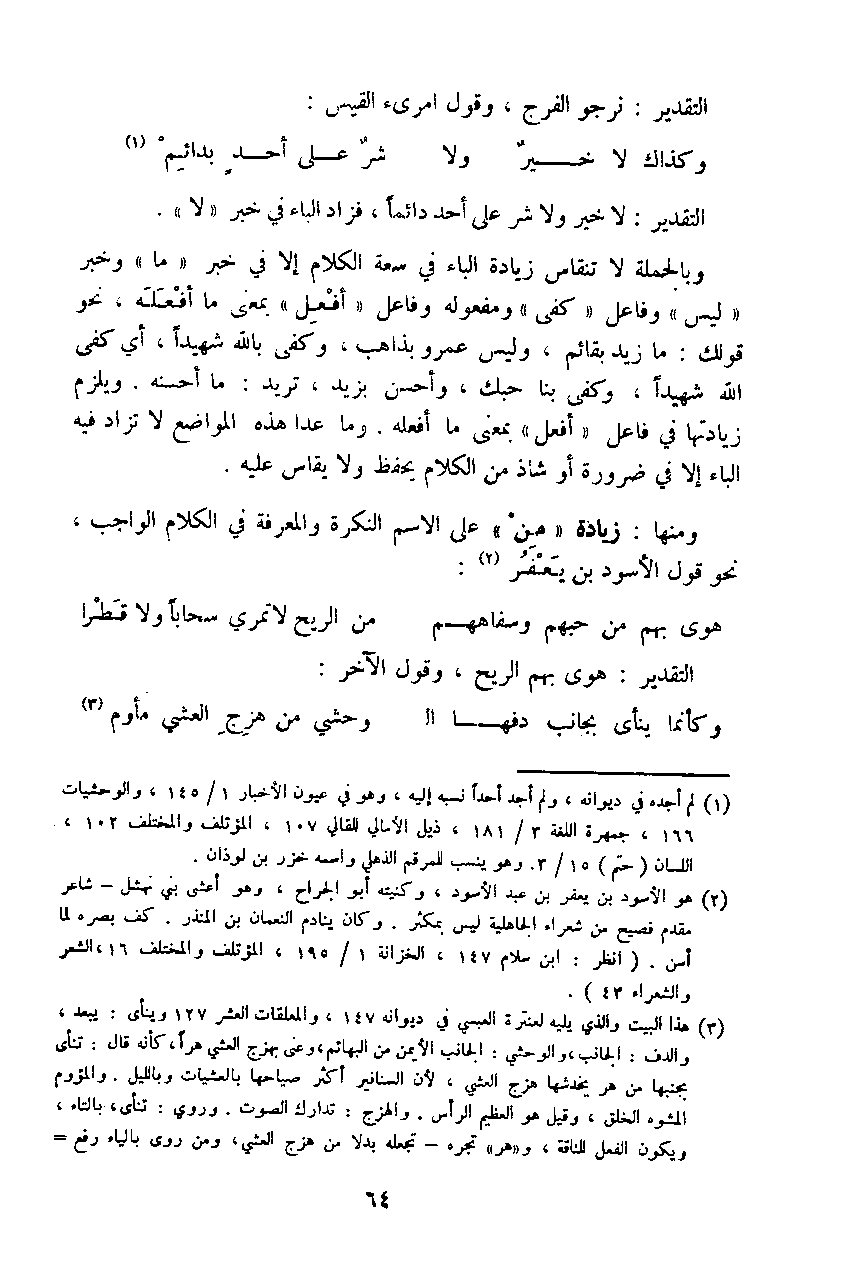 التقدير : نرجو الفرج ، وقول امرىء القيس :
وكذاك لا خـــيرٌ ولا شرٌ عـلى أحـدٍ بدائيمْ (١)
التقدير : لا خير ولا شر على أحد دائماً ، فزاد الباء في خبر « لا » .
وبالجملة لا تنقاس زيادة الباء في سعة الكلام إلا في خبر « ما » وخبر
« ليس » وفاعل « كفى » ومفعوله وفاعل « أفْعِل » بمعنى ما أفْعَلَه ، نحو
قولك : ما زيد بقائم ، وليس عمرو بذاهب ، وكفى بالله شهيداً ، أي كفى
الله شهيداً ، وكفى بنا حبك ، وأحسن بزيد ، تريد : ما أحسنه . ويلزم
زيادتها في فاعل « أفعل » بمعنى ما أفعله . وما عدا هذه المواضع لا تزاد فيه
الباء إلا في ضرورة أو شاذ من الكلام يحفظ ولا يقاس عليه .
ومنها : زيادة « مِنْ » على الاسم النكرة والمعرفة في الكلام الواجب ،
نحو قول الأسود بن يَعْفُرُ (٢) :
هوى بهم من حبهم وسفاههـم من الريح لاتمري سحاباً ولا قَطْرا
التقدير : هوى بهم الريح ، وقول الآخر :
وكأنما ينأى بجانب دفهـــا الـ وحشي من هزِجِ العشي مأوم (٣)
(١) لم أجده في ديوانه ، ولم أجد أحداً نسبه إليه ، وهو في عيون الأخبار ١ / ١٤٥ ، والوحشيات
١٦٦ ، جمهرة اللغة ٣ / ١٨١ ، ذيل الأمالي للقالي ١٠٧ ، المؤتلف والمختلف ١٠٢ ،
اللسان ( حتم ) ١٥ / ٣. وهو ينسب للمرقم الذهلي واسمه خزر بن لوذان .
(٢) هو الأسود بن يعفر بن عبد الأسود ، وكنيته أبو الجراح ، وهو أعشى بني نهشل – شاعر
مقدم فصيح من شعراء الجاهلية ليس بمكثر . وكان ينادم النعمان بن المنذر . كف بصره لما
أسن . ( انظر : ابن سلام ١٤٧ ، الخزانة ١ / ١٩٥ ، المؤتلف والمختلف ١٦ ،الشعر
والشعراء ٤٣ ) .
(٣) هذا البيت والذي يليه لعنترة العبسي في ديوانه ١٤٧ ، والمعلقات العشر ١٢٧ وينأى : يبعد ،
والدف : الجانب ،والوحشي : الجانب الأيمن من البهائم،وعنى بهزج العشي هراً، كأنه قال : تنأى
بجنبها من هر يخدشها هزج العشي ، لأن السنانير أكثر صياحها بالعشيات وبالليل . والمؤوم
المشوه الخلق ، وقيل هو العظيم الرأس . والهزج : تدارك الصوت . وروي : تنأى، بالتاء ،
ويكون الفعل للناقة ، و«هر» تجره – تجعله بدلا من هزج العشي، ومن روى بالياء رفع =
٦٤